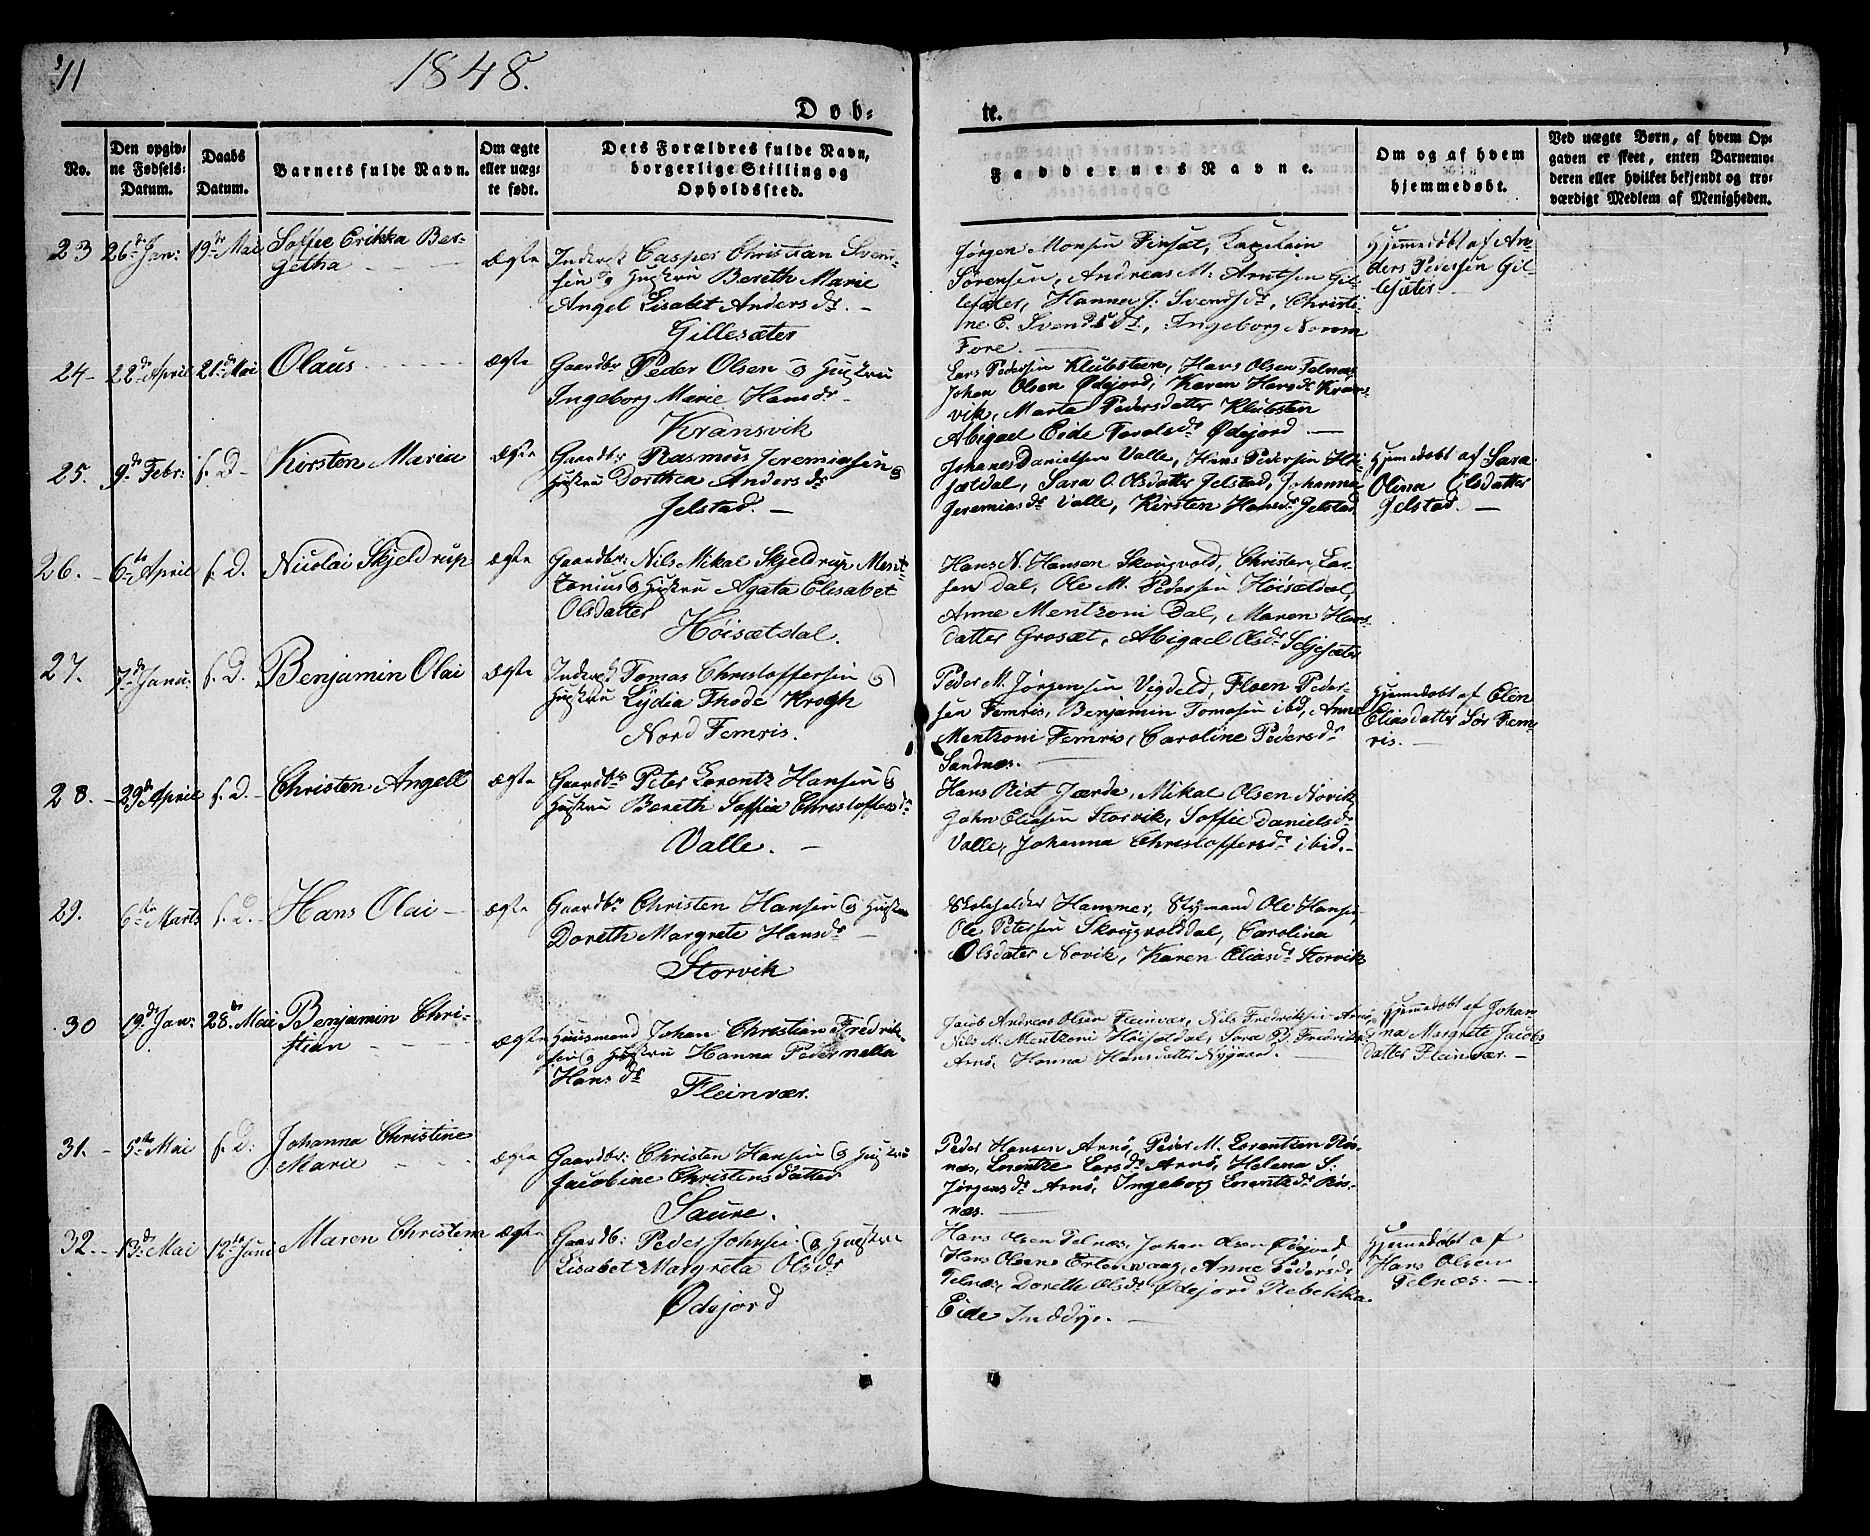 11
1848.
Døb-
te.
No.
Den opgiv-
ne Fødsels-
Datum.
Daabs
Datum.
Barnets fulde Navn.
Om ægte
eller uæg-
te født.
Dets Forældres fulde Navn,
borgerlige Stilling og
Opholdssted.
Faddernes Navne.
Om og af hvem
hjemmedøbt.
Ved uægte Børn, af hvem Op-
gaven er skeet, enten Barnemo-
deren eller hvilket bekjendt og tro-
værdigt Medlem af Menigheden.
23 26de Jan: 19de Mai Soffie Erikka Ber-
getha
Ægte
Inderst Casper Christian Svend-
sen og Hustru Bereth Marie
Angel Lisabet Andersdr. -
Gillesæter
Jørgen Monsen Finsæt,
Sørensen, Andreas M. Arntsen Gil-
lesæter, Hanna J. Svendsdr, Christi-
ne E. Svendsdr, Ingeborg
Fore.
Hjemmedøbt af An-
ders Pedersen Gil-
lesæter
24- 22de April 21de Mai Olaus
Ægte
Gaardbr Peder Olsen og Hustru
Ingeborg Marie Hansdr-
Kransvik
Lars Pedersen Klubsteen, Hans Olsen Telnæs
Johan Olsen Ødejord, Karen Hansdr Krans-
vik, Marta Pedersdatter Klubsten
Abigael Eide Ødejord
25. 9de Febr: s. D- Kirsten Maria
Ægte
Gaardbr Rasmus Jeremiasen og
Hustru Dorthea Andersdr
Jelstad. -
Johanes Danielsen Valle, Hans Pedersen Høi-
sætdal, Sara O. Olsdatter Jelstad, Johanna
Jeremiasdr Valle, Kirsten Hansdr Jelstad
Hjemmedøbt af Sara
Olina Olsdatter
Jelstad. -
26. - 6te April s. D. Nicolai Skjeldrup
Ægte
Gaardbr: Nils Mikal Skjeldrup
og Hustru Agata Elisabet
Olsdatter
Høisætdal.
Hans N. Hansen Skougvold, Christen Lar-
sen Dal, Ole M. Pedersen Høisætdal,
Anne Mentzoni Dal, Maren Hans-
datter Grosæt, Abigael Olsdr Seljesæter
27. 7de Janu: s. D. Benjamin Olai
Ægte
Inderst Tomas Christoffersen og
Hustru Lydia Thode Krogh
Nord Femris.
Peder M. Jørgensen Vigdeld, Floen Peder-
sen Femris, Benjamin Tomasen ibd, Anne
Mentzoni Femris, Caroline Pedersdr
Sandnæs.
Hjemmedøbt af Elen
Eliasdatter Sør Fem-
ris. -
28. - 29de April s. D.- Christen Angell
Ægte
Gaardbr Peter Lorentz Hansen og
Hustru Bereth Soffia Christoffersdr
Valle. -
Hans Rist Jærde, Mikal Olsen Novik,
John Eliasen Storvik, Soffie Danielsdr
Valle, Johanna Christoffersdr ibid.-
29. 6te Marts s. D.- Hans Olai -
Ægte
Gaardbr Christen Hansen og Hustru
Doreth Margrete Hansdr
Storvik
Skoleholder Hammer, Styrmand Ole Hansen
Ole Petersen Skougvolddal, Carolina
Olsdater Novik, Karen Eliasdr Storvik
30 19de Jan: 28de Mai Benjamin Chri-
stian
Ægte
Huusmand Johan Christian Fredrik-
sen og Hustru Hanna Pedernella
Hansdr
Fleinvær.
Jacob Andreas Olsen Fleinvær, Nils Fredriksen Arnø,
Nils M. Mentzoni Høisætdal, Sara P. Fredriksdr
Arnø, Hanna Hansdatter Nygaard.
Hjemmedøbt af Johan-
na Margrete Jacobs-
datter Fleinvær. -
31. - 5te Mai s. D. Johanna Christine
Maria
Ægte
Gaardbr: Christen Hansen og Hustru
Jacobine Christensdatter
Saure.
Peder Hansen Arnø, Peder M. Lorentzen Røs-
næs, Lorentze Larsdr Arnø, Helena S:
Jørgensdr Arnø, Ingeborg Lorentzdr Røs-
næs.
32. - 13de Mai 12te Juni Maren Christine
Ægte
Gaardb: Peder Johnsen og Hustru
Lisabet Margreta Olsdr
Ødejord
Hans Olsen Telnæs, Johan Olsen Ødejord
Hans Olsen Ertenvaag, Anne Pedersdr
Telnæs, Doreth Olsdr Ødejord Rebekka
Eide Inddyr. -
Hjemmedøbt af
Hans Olsen
Telnæs. -